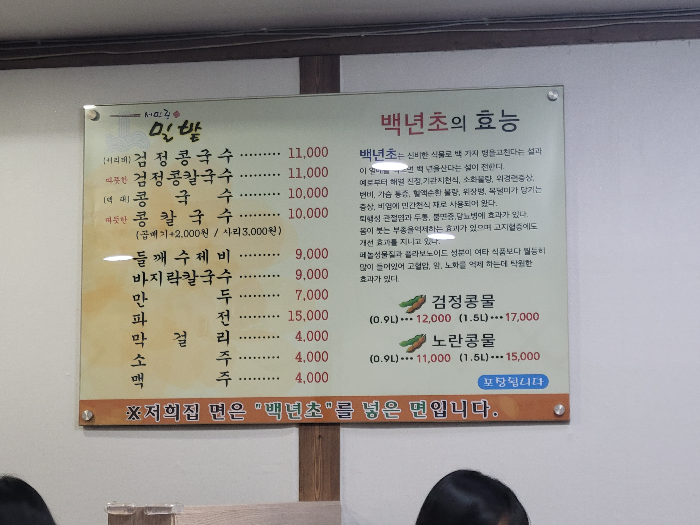 서민준
밀밭
(서리태) 검정콩국수 ········· 11,000
따뜻한 검정콩칼국수 ······ 11,000
(백 태) 콩 국 수 ········· 10,000
따뜻한 콩 칼 국 수 ········· 10,000
(곱빼기+2,000원 / 사리3,000원)
들 깨 수 제 비 ········· 9,000
바지락칼국수 ········· 9,000
만 두 ········· 7,000
파 전 ········· 15,000
막 걸 리 ········· 4,000
소 주 ········· 4,000
맥 주 ········· 4,000
백년초의 효능
백년초는 신비한 식물로 백 가지 병을고친다는 설과
이 열매를 먹으면 백 년을산다는 설이 전한다.
예로부터 해열 진정,기관지천식, 소화불량, 위경련증상,
변비, 가슴 통증, 혈액순환 불량, 위장병, 옆널미가 당기는
증상, 비염에 민간천식 재로 사용되어 왔다.
퇴행성 관절염과 두통, 불면증,당뇨병에 효과가 있다.
몸이 붓는 부종을억제하는 효과가 있으며 고지혈증에도
개선 효과를 지니고 있다.
페놀성물질과 플라보노이드 성분이 여타 식품보다 월등히
많이 들어있어 고혈압, 암, 노화를 억제 하는데 탁월한
효과가 있다.
검정콩물
(0.9L)··· 12,000 (1.5L)···17,000
노란콩물
(0.9L)··· 11,000 (1.5L)···15,000
포장됩니다
※저희집 면은 "백년초"를 넣은 면입니다.